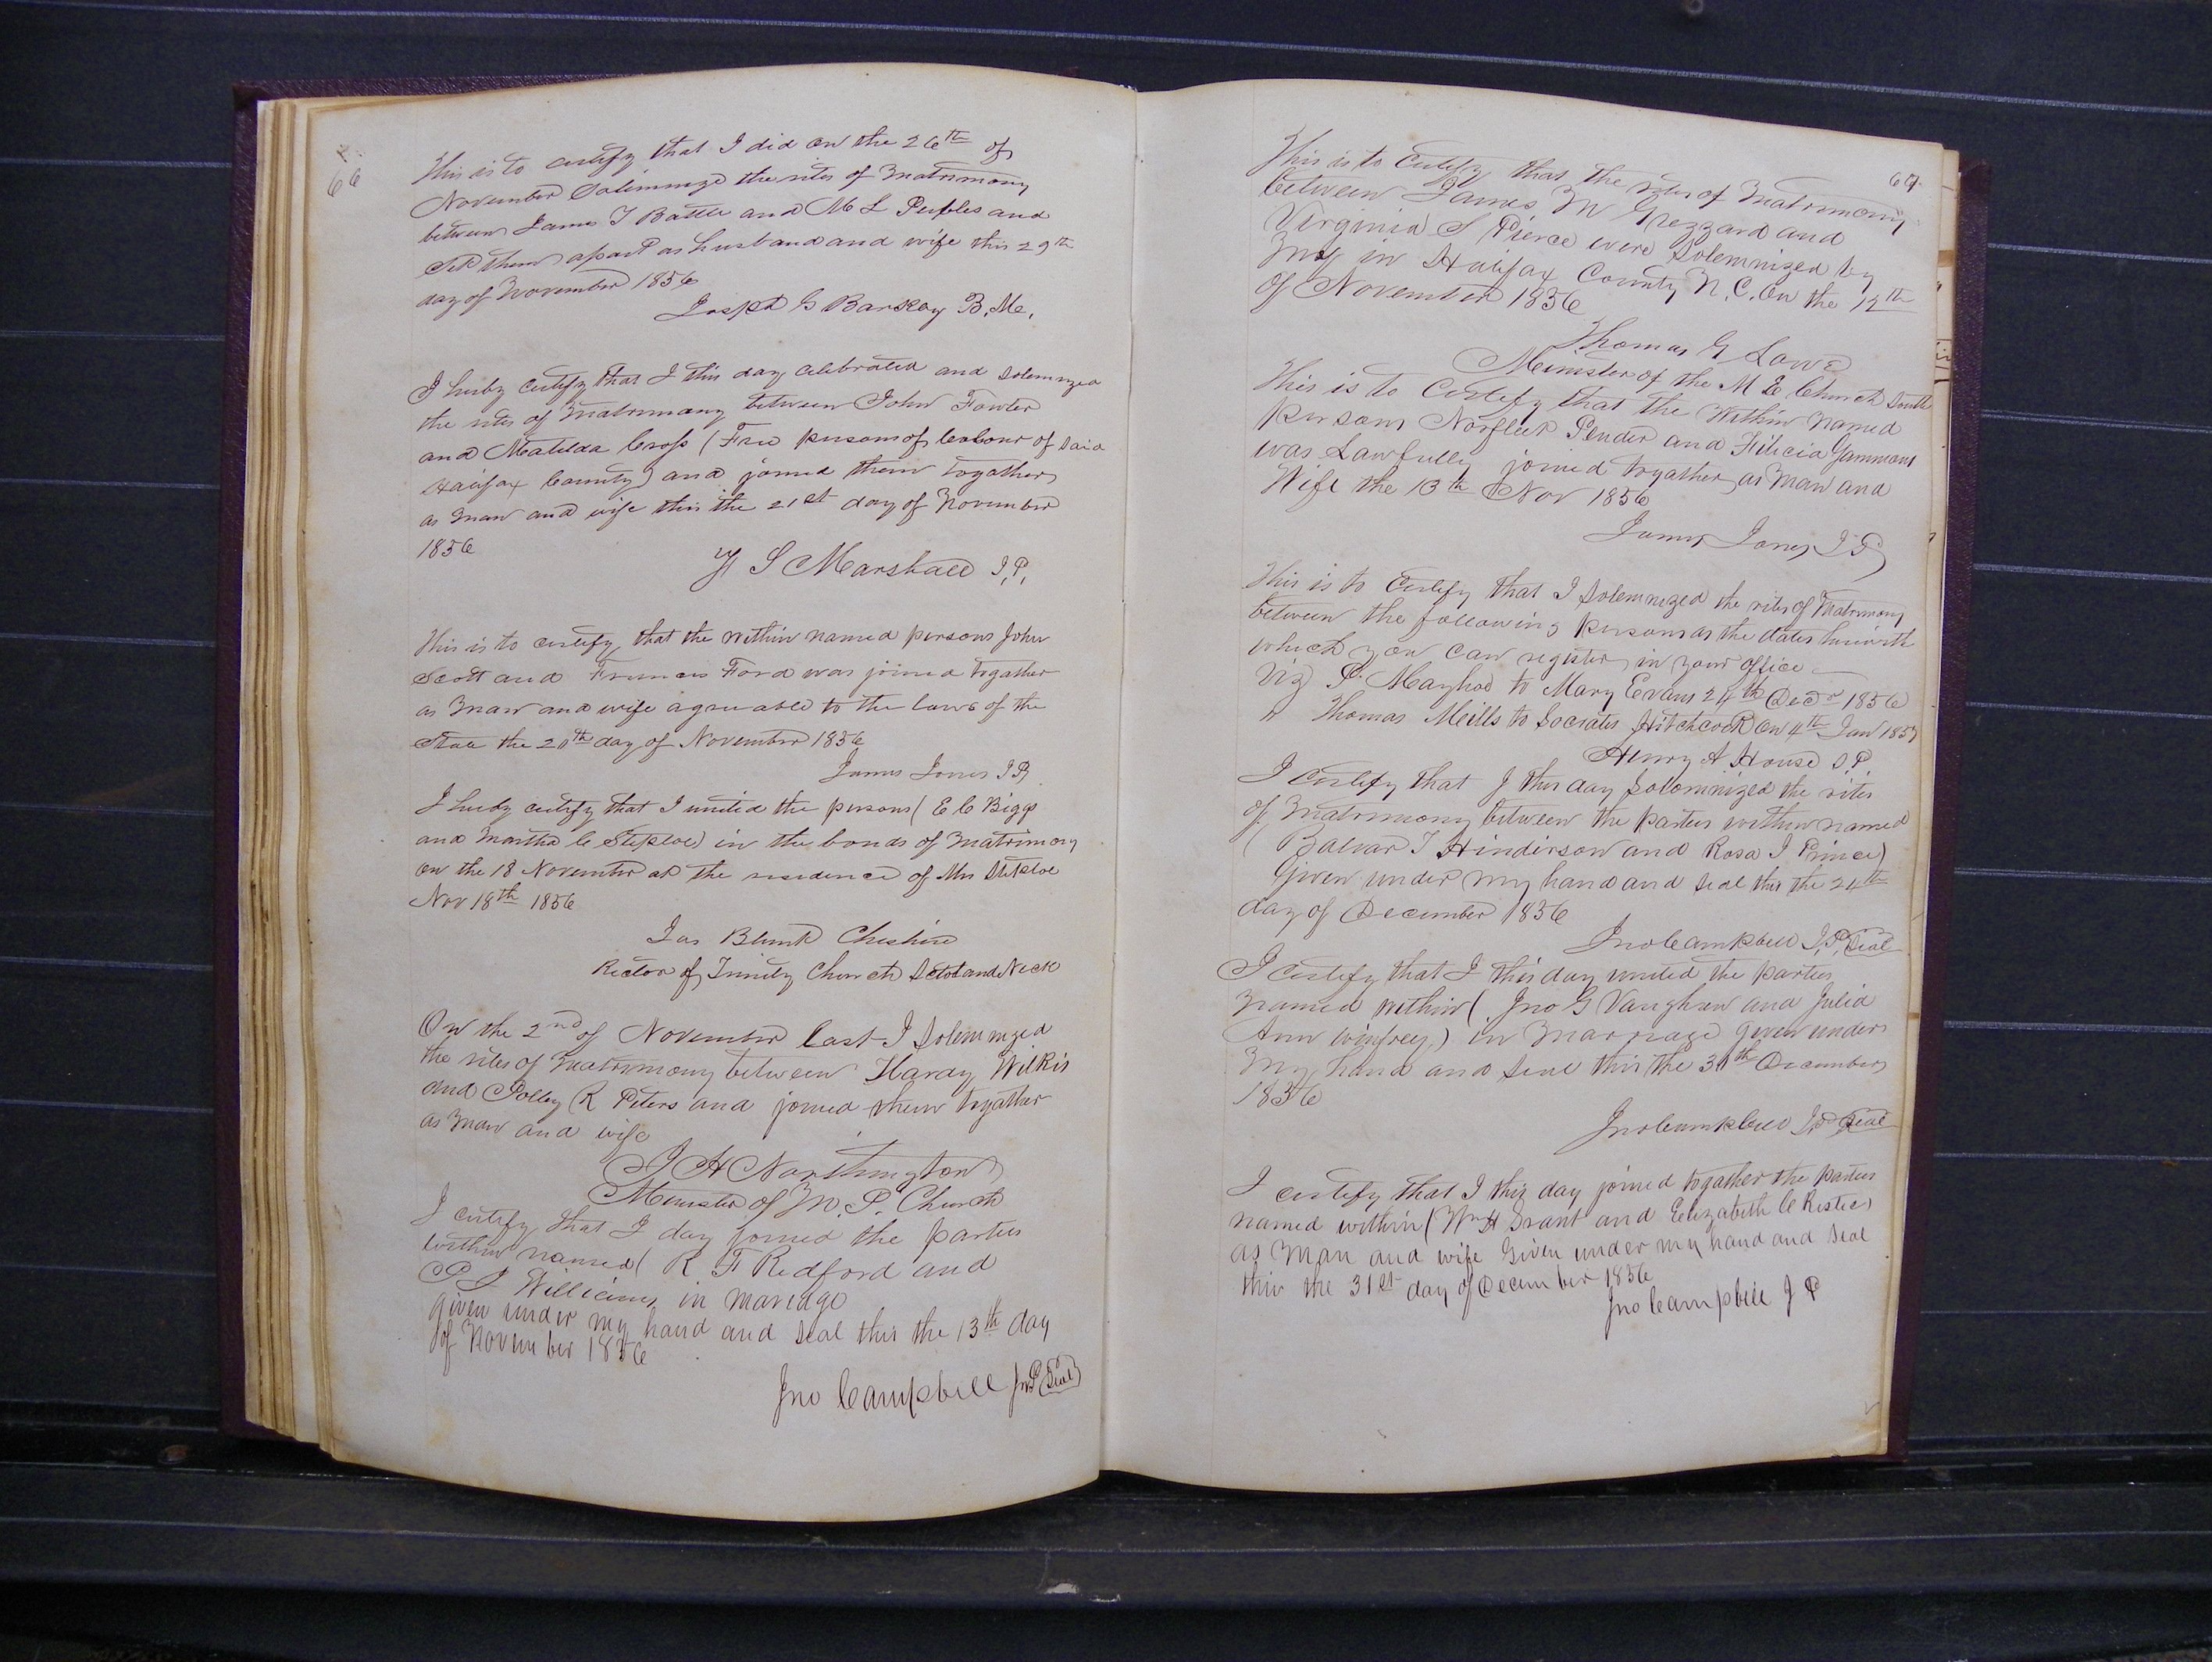 66
This is to certify that I did on the 26th of
November Solimnize the rites of Matrimony
between James T Battle and M L Peebles and
Set them apart as husband and wife this 29th
day of November 1856
Joseph G Barkley B. Me.
I herby certify that I this day celebrated and Solemnized
the rites of Matrimony between John Fowler
and Matilda Cross (Free persons of Colour of Said
Halifax County) and joined them togather
as Man and wife this the 21st day of November
1856
S Marshall J. P.
This is to certify, that the within named persons John
Scott and Frances Ford was joined togather
as Man and wife agreeable to the laws of the
State the 20th day of November 1856
James Jones J P
I herby certify that I united the persons (E C Biggs
and Martha C Steptoe) in the bonds of Matrimony
on the 18 November at the residence of Mrs Steptoe
Nov 18th 1856
Jos Blunt Cheshire
Rector of Trinity Church Scotland Neck
On the 2nd of November last I Solemnized
the rites of Matrimony between Haray Wilkis
and Polley R Peters and joined them togather
as Man and wife
J H Northington
Minister of M. P. Church
I certify that I day joined the parties
within named (R F Redford and
P J Williams in mariage
given under my hand and Seal this the 13th day
of November 1856
Jno Campbell J P (Seal)
67
This is to Certify that the rites of Matrimony
between James M Grizzard and
Virginia S Pierce were Solemnized by
Me in Halifax County N. C. On the 12th
of November 1856
Thomas G Lowe
Meinister of the M E Church South
This is to Certify that the Within Named
persons Norfleet Pender and Filicia Gammons
was Lawfully joined togather as Man and
Wife the 13th Nov 1856
James Jones J P
This is to Certify that I Solemnized the rites of Matrimony
between the following persons as the dates herewith
which you can register in your office
Viz P. Mayhoo to Mary Evans 24th Decr 1856
" Thomas Meills to Socrates Hitchcock On 4th Jan 1857
Henry A House J. P.
I Certify that I this day Solominized the rites
of Matrimony between the parties within named
(Balvar T Hinderson and Rosa J Prince)
Given under my hand and Seal this the 24th
day of December 1856
Jno Campbell J. P. Seal
I Certify that I this day united the parties
Named within (Jno G Vaughan and Julia
Ann Winfrey) in Marriage given under
My hand and Seal this the 30th December
1856
Jno Campbell J. P Seal
I certify that I this day joined togather the parties
named within (Wm H Grant and Elizabeth C
as Man and wife Given under my hand and Seal
this the 31st day of December 1856
Jno Campbell J P